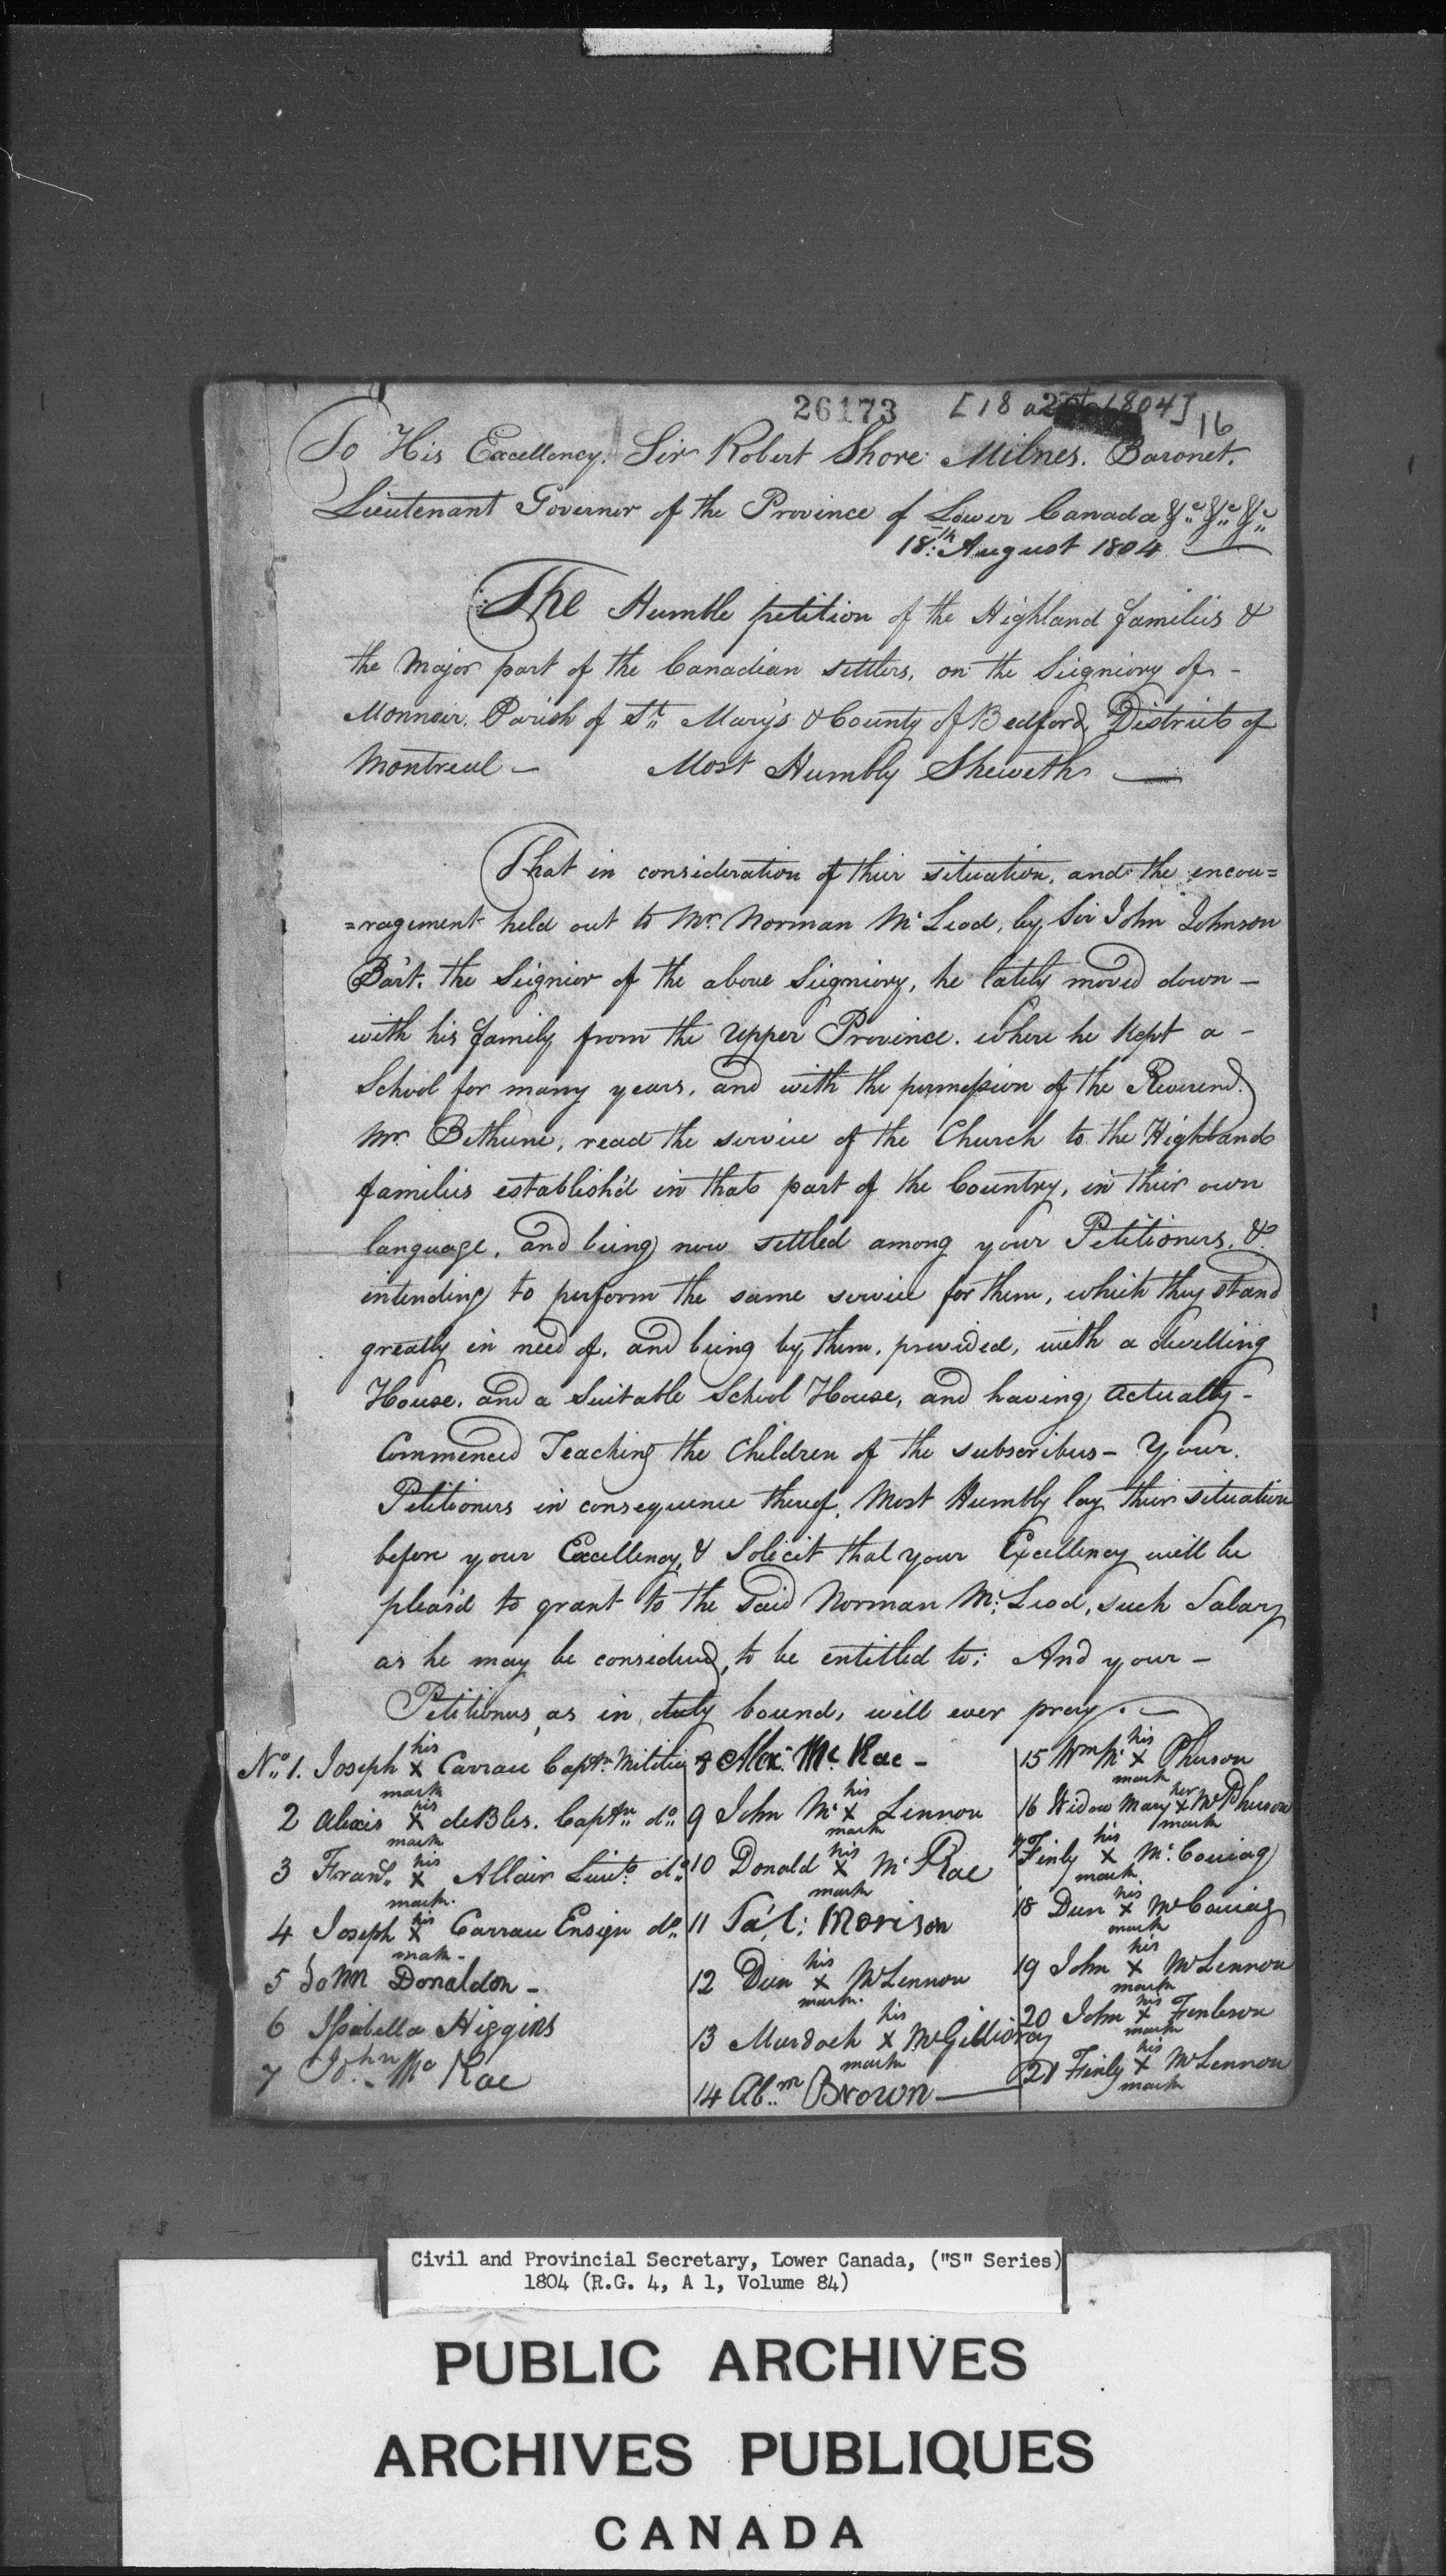 26173 [18 a 1804] 16
To His Excellency. Sir Robert Shore Milnes. Baronet.
Lieutenant Governor of the Province of Lower Canada &c &c &c
18th August 1804
The Humble petition of the Highland families &
the Major part of the Canadian settlers, on the Seigniory of -
Monnoir. Parish of St Mary's & County of Bedford, District of
Montreal - Most Humbly Sheweth
That in consideration of their situation, and the encou=
=ragement held out to Mr. Norman McLeod, by Sir John Johnson
Bart. the Seignior of the above Seigniory, he lately moved down -
with his family from the Upper Province. where he kept a -
School for many years, and with the permission of the Reverend.
Mr. Bethune, read the service of the Church to the Highland
families establish'd in that part of the Country, in their own
language, and being now settled among your Petitioners, &
intending to perform the same service for them, which they stand
greatly in need of, and being by them, provided, with a dwelling
House, and a Suitable School House, and having actually -
Commenced Teaching the Children of the subscribers - Your.
Petitioners in consequence thereof, Most Humbly lay their situation
before your Excellency, & Solicit that your Excellency will be
pleas'd to grant to the said Norman McLeod, such Salary
as he may be considered, to be entitled to; And your -
Petitioners, as in duty bound, will ever pray. -
No. 1. Joseph his X mark Carrau Captn. Militia
2 Alexis his X mark deBles. Captn. do.
3 Frans. his X mark Allair Lieut. do.
4 Joseph his X mark Carrau Ensign do.
5 John Donaldon -
6 Isabella Higgins
7 John Mc Rae
8 Alex. Mc Rae -
9 John Mc his X mark Lennon
10 Donald his X mark McRae
11 Morison
12 Dun his X mark McLennon
13 Murdoch his X mark McGillivray
14 Abm. Brown
15 Wm Mc his X mark Pherson
16 Widow Mary her X mark McPherson
17 Finly his X mark McCouiag
18 Dun his X mark McCouiag
19 John his X mark McLennon
20 John his X mark Finleson
21 Finly his X mark McLennon
Civil and Provincial Secretary, Lower Canada, ("S" Series)
1804 (R.G. 4, A 1, Volume 84)
PUBLIC ARCHIVES
ARCHIVES PUBLIQUES
CANADA